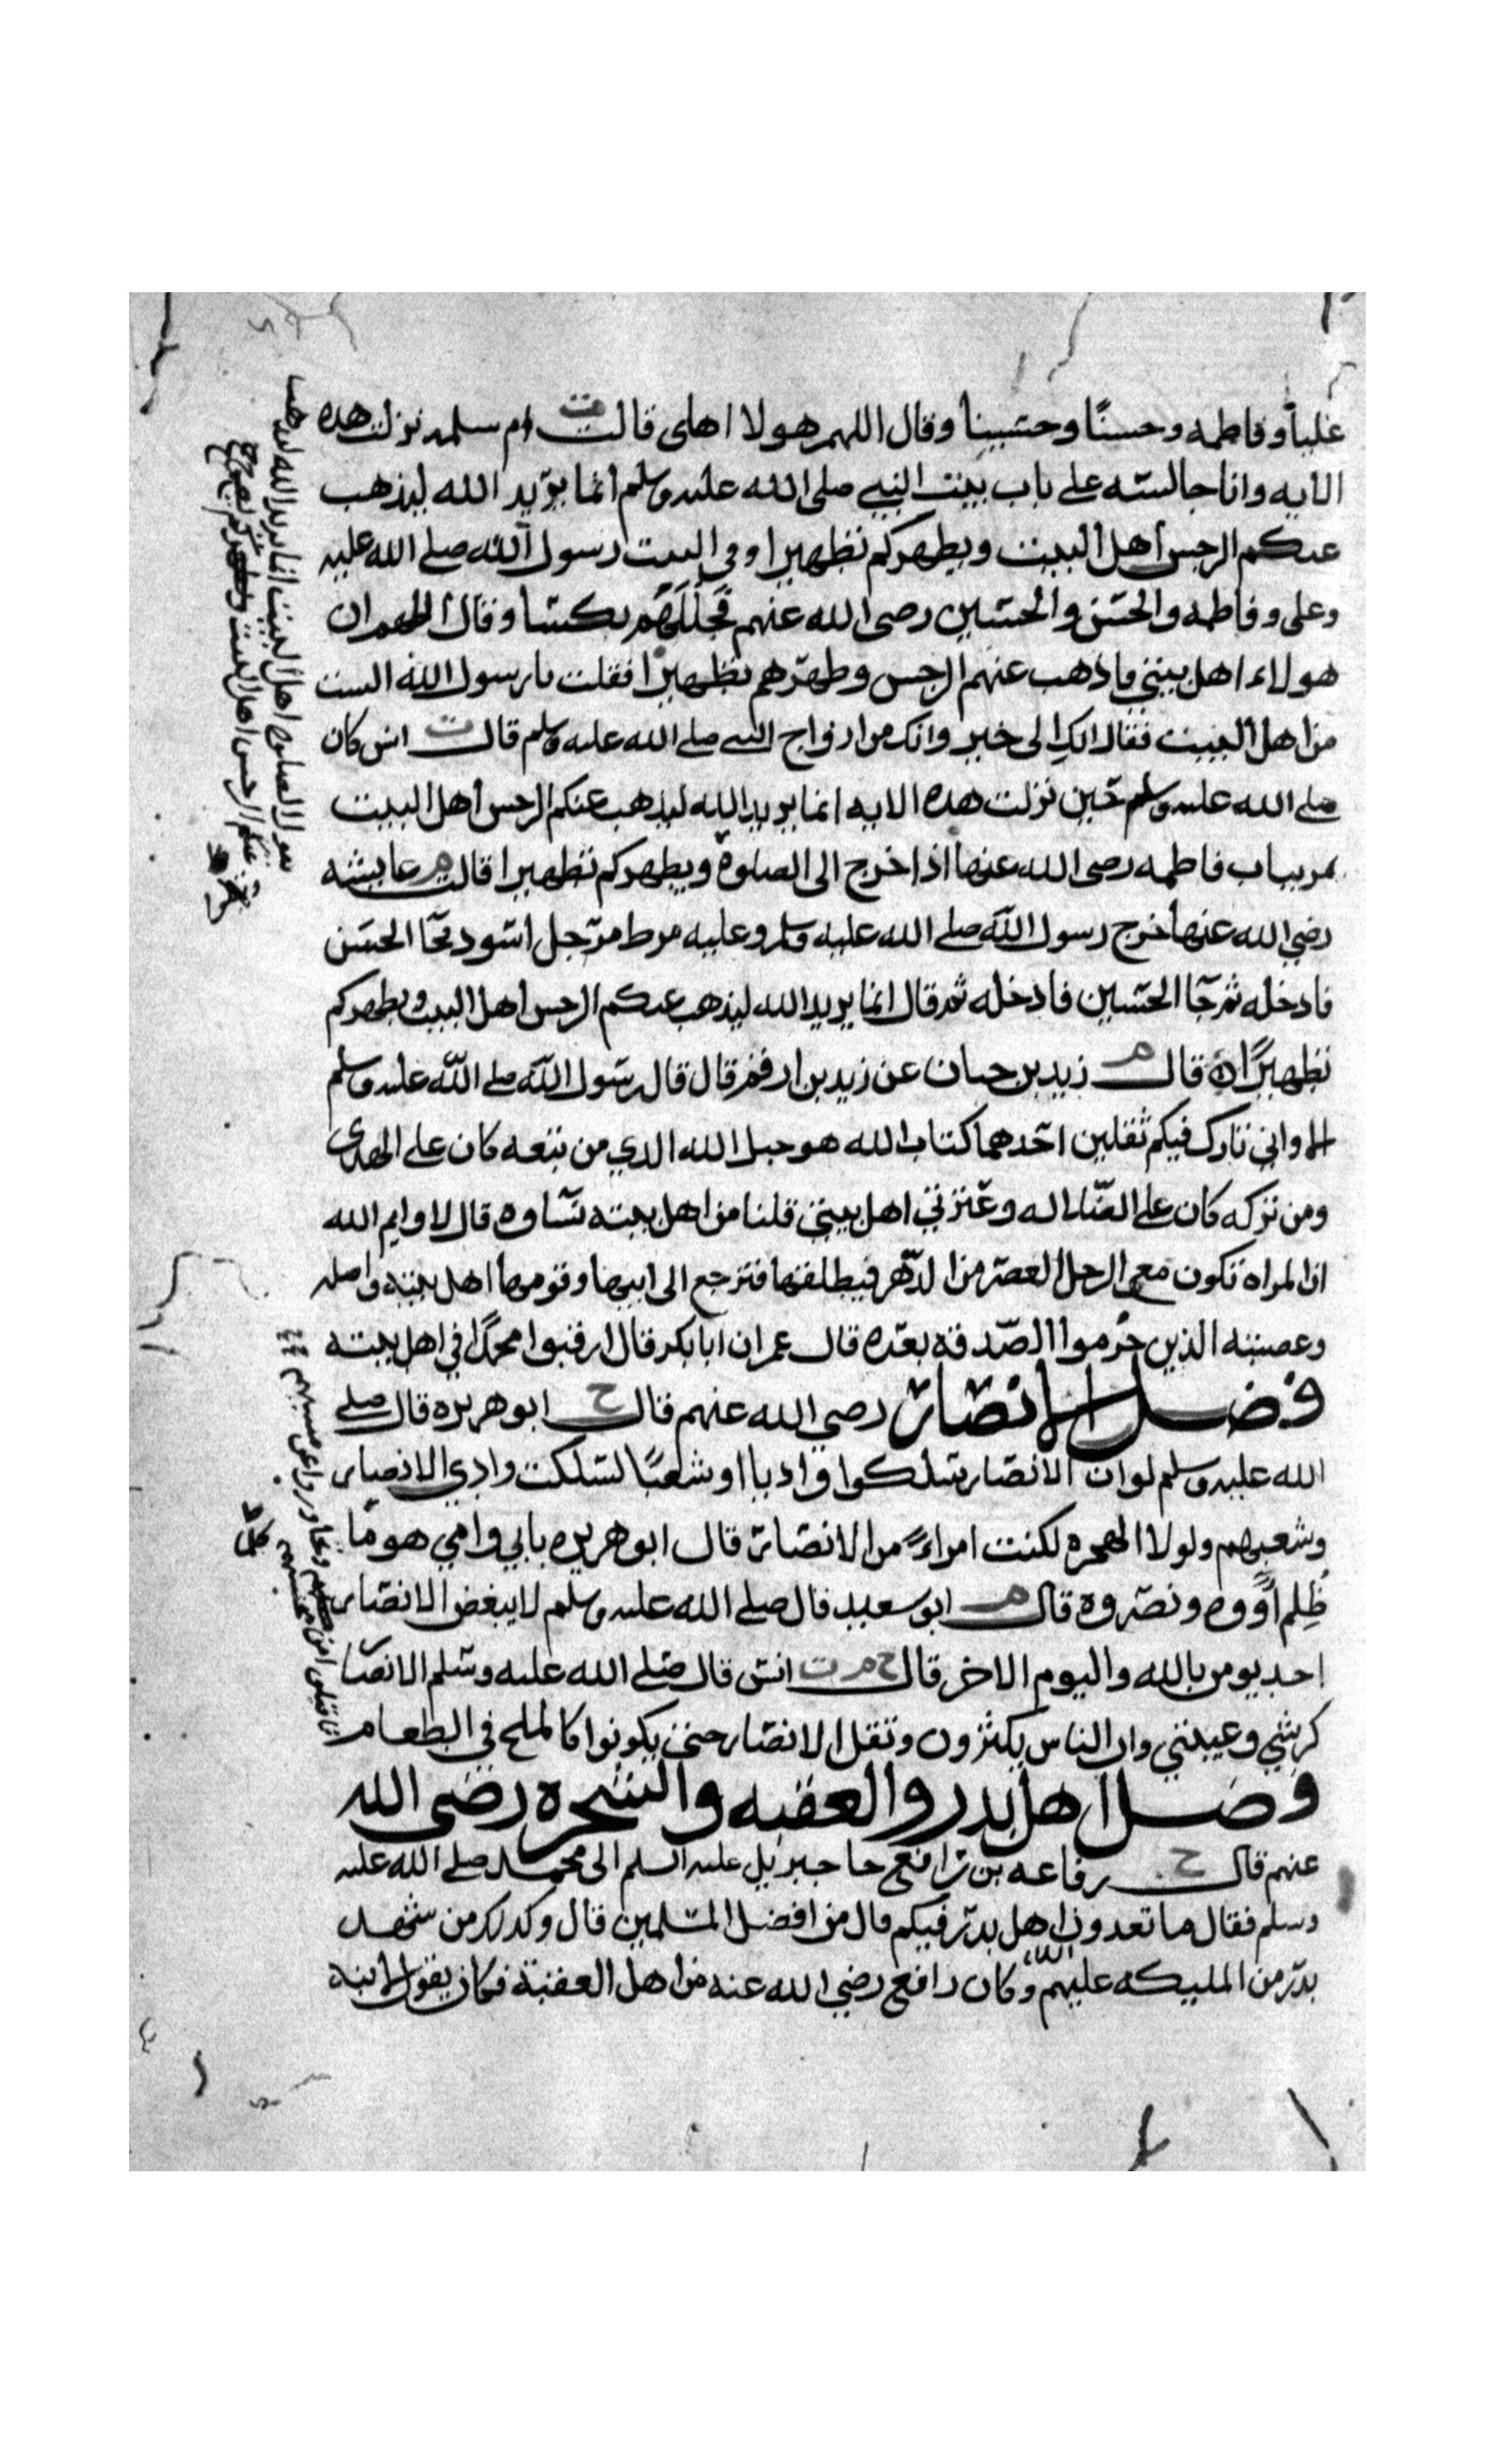 علياً وفاطمه وحسنًا وحسينا وقال اللهم هولا اهلى قالت ت ام سلمه نزلت هده
الايه وانا جالسه على باب بيت النبي صلى الله عليه وسلم انما يريد الله ليذهب
عنكم الرجس اهل البيت ويطهركم تطهيرا وفى البيت رسول الله صلى الله عليه
وعلى وفاطمه والحسن والحسين رضى الله عنهم فجللهم بكسا وقال اللهم ان
هولاء اهل بيتي فاذهب عنهم الرجس وطهرهم تطهيرا فقلت يا رسول الله الست
من اهل البيت فقال انك الى خير وانك من ازواج النبى صلى الله عليه وسلم قال ت انس كان
صلى الله عليه وسلم حين نزلت هده الايه انما يريد الله ليذهب عنكم الرجس اهل البيت
يمر بباب فاطمه رضى الله عنها اذا خرج الى الصلوة ويطهركم تطهيرا قالت م عايشه
رضي الله عنها خرج رسول الله صلى الله عليه وسلم وعليه مرط مرجل اسود فجا الحسن
فادخله ثم جا الحسين فادخله ثم قال انما يريد الله ليذهب عنكم الرجس اهل البيت ويطهركم
تطهيرًا ه قال م زيد بن حبان عن زيد بن ارقم قال قال رسول الله صلى الله عليه وسلم
الا واني تارك فيكم ثقلين احدهما كتاب الله هو حبل الله الدي من تبعه كان على الهدى
ومن تركه كان على الضلاله وعترتي اهل بيتي قلنا من اهل بيته نساوه قال لا وايم الله
ان المراه تكون مع الرجل العصر من الدهر فيطلقها فترجع الى ابيها وقومها اهل بيته واصله
وعصبته الذين حرموا الصدقه بعده قال عمر ان ابا بكر قال ارقبوا محمدًا في اهل بيته
فضل الانصار رضي الله عنهم قال ح ابو هريره قال صلى
الله عليه وسلم لو ان الانصار سلكوا واديا او شعبًا لسلكت وادي الانصار
وشعبهم ولولا الهجره لكنت امراءً من الانصار قال ابو هريره بابي وامي هو ما
ظلم آووه ونصروه قال م ابو سعيد قال صلى الله عليه وسلم لا يبغض الانصار
احد يومن بالله واليوم الاخر قال خ م ت انس قال صلى الله عليه وسلم الانصار
كرشي وعيبتي وان الناس يكثرون وتقل الانصار حتى يكونوا كالملح في الطعام
فضل اهل بدر والعقبه والشجره رضى الله
عنهم قال ح رفاعه بن رافع جا جبريل عليه السلم الى محمد صلى الله عليه
وسلم فقال ما تعدون اهل بدر فيكم قال من افضل المسلمين قال وكدلك من شهد
بدر من المليكه عليهم السلم وكان رافع رضي الله عنه من اهل العقبة فكان يقول لابنه
فاقبلوا من محسنهم وتجاوزوا عن مسيهم